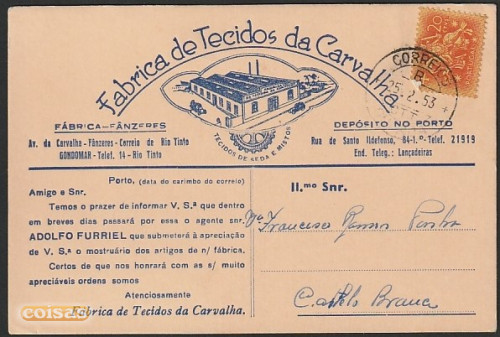 Fabrica de Tecidos da Carvalha
TECIDOS DE SEDA E MISTOS
CORREIOS
2.53
FÁBRICA-FÂNZERES
Av. da Carvalha - Fânzeres - Correio de Rio Tinto
GONDOMAR - Telef. 14 - Rio Tinto
DEPÓSITO NO PORTO
Rua de Santo Ildefonso, 84-1.º - Telef. 21919
End. Teleg.: Lançadeiras
Porto, (data do carimbo do correio)
Amigo e Snr.
Temos o prazer de informar V. S.ª que dentro
em breves dias passará por essa o agente snr.
ADOLFO FURRIEL que submeterá à apreciação
de V. S.ª o mostruário dos artigos de n/ fábrica.
Certos de que nos honrará com as s/ muito
apreciáveis ordens somos
Atenciosamente
Fábrica de Tecidos da Carvalha.
Il.mo Snr.
Francisco Ramos
Castelo Branco
coisas